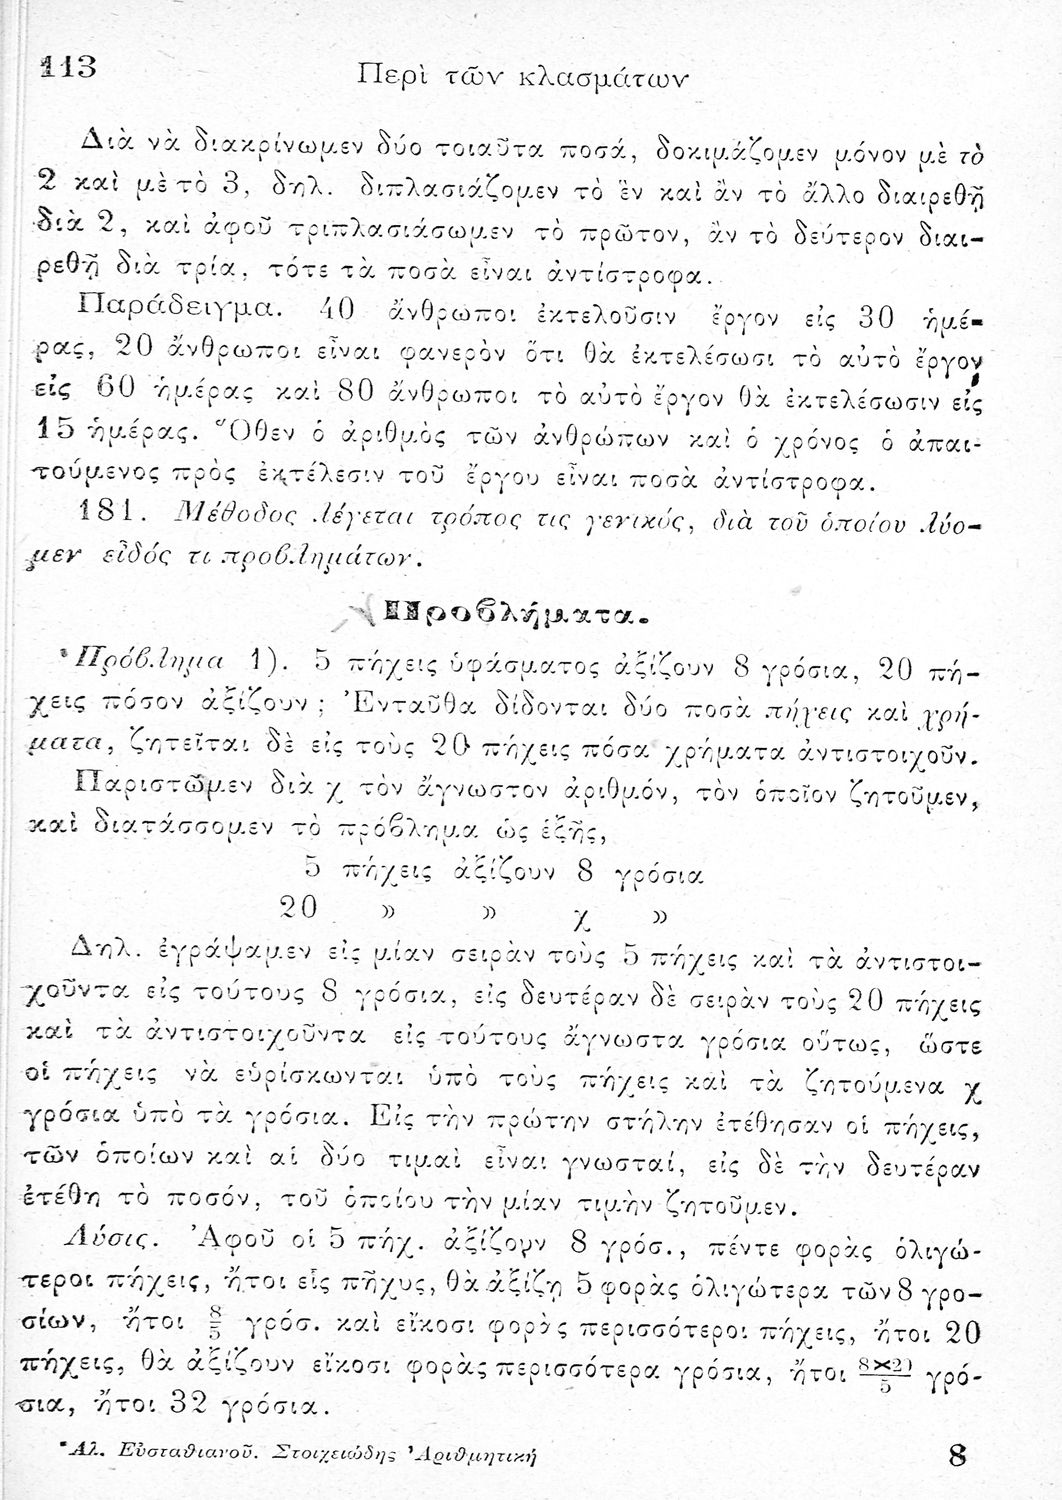 113
Περὶ τῶν κλασμάτων
Διὰ νὰ διακρίνωμεν δύο τοιαῦτα ποσά, δοκιμάζομεν μόνον μὲ τὸ
2 καὶ μὲ τὸ 3, δηλ. διπλασιάζομεν τὸ ἓν καὶ ἂν τὸ ἄλλο διαιρεθῇ
διὰ 2, καὶ ἀφοῦ τριπλασιάσωμεν τὸ πρῶτον, ἂν τὸ δεύτερον διαι-
ρεθῇ διὰ τρία, τότε τὰ ποσὰ εἶναι ἀντίστροφα.
Παράδειγμα. 40 ἄνθρωποι ἐκτελοῦσιν ἔργον εἰς 30 ἡμέ-
ρας, 20 ἄνθρωποι εἶναι φανερὸν ὅτι θὰ ἐκτελέσωσι τὸ αὐτὸ ἔργον
εἰς 60 ἡμέρας καὶ 80 ἄνθρωποι τὸ αὐτὸ ἔργον θὰ ἐκτελέσωσιν εἰς
15 ἡμέρας. Ὅθεν ὁ ἀριθμὸς τῶν ἀνθρώπων καὶ ὁ χρόνος ὁ ἀπαι-
τούμενος πρὸς ἐκτέλεσιν τοῦ ἔργου εἶναι ποσὰ ἀντίστροφα.
181. Μέθοδος λέγεται τρόπος τις γενικός, διὰ τοῦ ὁποίου λύο-
μεν εἶδός τι προβλημάτων.
Προβλήματα.
Πρόβλημα 1). 5 πήχεις ὑφάσματος ἀξίζουν 8 γρόσια, 20 πή-
χεις πόσον ἀξίζουν; Ἐνταῦθα δίδονται δύο ποσὰ πήχεις καὶ χρή-
ματα, ζητεῖται δὲ εἰς τοὺς 20 πήχεις πόσα χρήματα ἀντιστοιχοῦν.
Παριστῶμεν διὰ χ τὸν ἄγνωστον ἀριθμόν, τὸν ὁποῖον ζητοῦμεν,
καὶ διατάσσομεν τὸ πρόβλημα ὡς ἑξῆς,
5 πήχεις ἀξίζουν 8 γρόσια
20 » » χ »
Δηλ. ἐγράψαμεν εἰς μίαν σειρὰν τοὺς 5 πήχεις καὶ τὰ ἀντιστοι-
χοῦντα εἰς τούτους 8 γρόσια, εἰς δευτέραν δὲ σειρὰν τοὺς 20 πήχεις
καὶ τὰ ἀντιστοιχοῦντα εἰς τούτους ἄγνωστα γρόσια οὕτως, ὥστε
οἱ πήχεις νὰ εὑρίσκωνται ὑπὸ τοὺς πήχεις καὶ τὰ ζητούμενα χ
γρόσια ὑπὸ τὰ γρόσια. Εἰς τὴν πρώτην στήλην ἐτέθησαν οἱ πήχεις,
τῶν ὁποίων καὶ αἱ δύο τιμαὶ εἶναι γνωσταί, εἰς δὲ τὴν δευτέραν
ἐτέθη τὸ ποσόν, τοῦ ὁποίου τὴν μίαν τιμὴν ζητοῦμεν.
Λύσις. Ἀφοῦ οἱ 5 πήχ. ἀξίζουν 8 γρόσ., πέντε φορὰς ὀλιγώ-
τεροι πήχεις, ἤτοι εἷς πῆχυς, θὰ ἀξίζῃ 5 φορὰς ὀλιγώτερα τῶν 8 γρο-
σίων, ἤτοι 8/5 γρόσ. καὶ εἴκοσι φορὰς περισσότεροι πήχεις, ἤτοι 20
πήχεις, θὰ ἀξίζουν εἴκοσι φορὰς περισσότερα γρόσια, ἤτοι 8×20/5 γρό-
σια, ἤτοι 32 γρόσια.
Ἀλ. Εὐσταθιανοῦ. Στοιχειώδης Ἀριθμητική 8